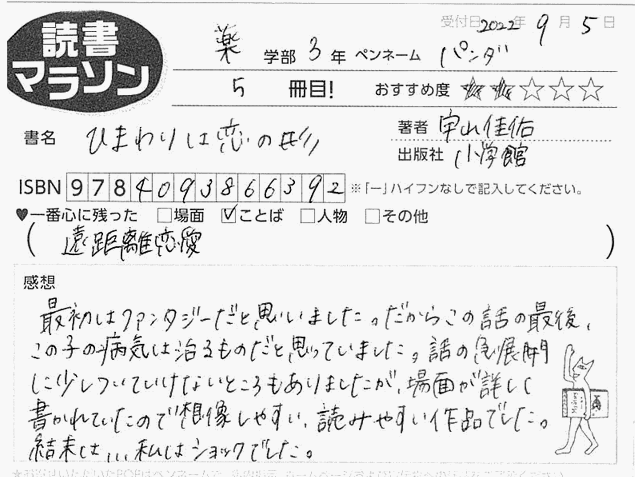 受付日 2022年 9月 5日
読書
マラソン
薬 学部 3年 ペンネーム パンダ
5 冊目! おすすめ度 ★★☆☆☆
書名 ひまわりは恋の形
著者 宇山佳佑
出版社 小学館
ISBN 9784093866392 ※「ー」ハイフンなしで記入してください。
♥一番心に残った □場面 ☑ことば □人物 □その他
(遠距離恋愛)
感想
最初はファンタジーだと思いました。だからこの話の最後、
この子の病気は治るものだと思っていました。話の急展開
に少しついていけないところもありましたが、場面が詳しく
書かれていたので想像しやすい、読みやすい作品でした。
結末は...私はショックでした。